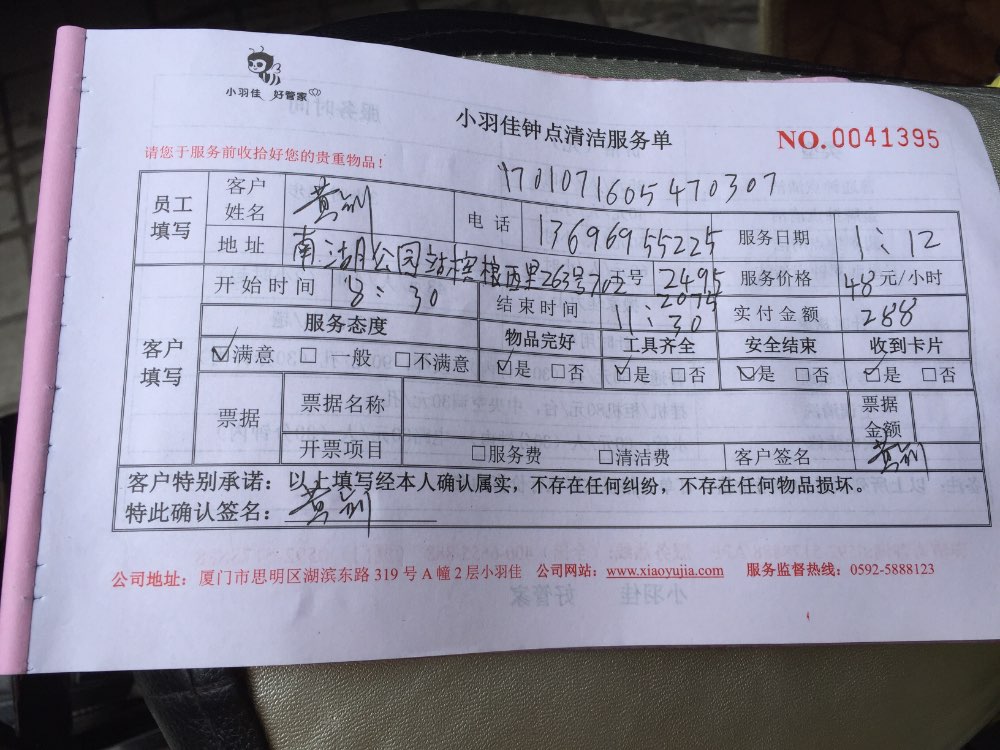 小羽佳 好管家
小羽佳钟点清洁服务单
NO.0041395
请您于服务前收拾好您的贵重物品！
1701071605470307
员工填写 客户姓名 黄 电话 13696955225 服务日期 1:12
地址 南湖公园站 西里263号702 工号 2495 2074 服务价格 48元/小时
客户填写 开始时间 8:30 结束时间 11:30 实付金额 288
服务态度 物品完好 工具齐全 安全结束 收到卡片
☑满意 □一般 □不满意 ☑是 □否 ☑是 □否 ☑是 □否 ☑是 □否
票据 票据名称 票据金额
开票项目 □服务费 □清洁费 客户签名 黄
客户特别承诺：以上填写经本人确认属实，不存在任何纠纷，不存在任何物品损坏。
特此确认签名：黄
公司地址：厦门市思明区湖滨东路 319 号 A 幢 2 层小羽佳 公司网站：www.xiaoyujia.com 服务监督热线：0592-5888123